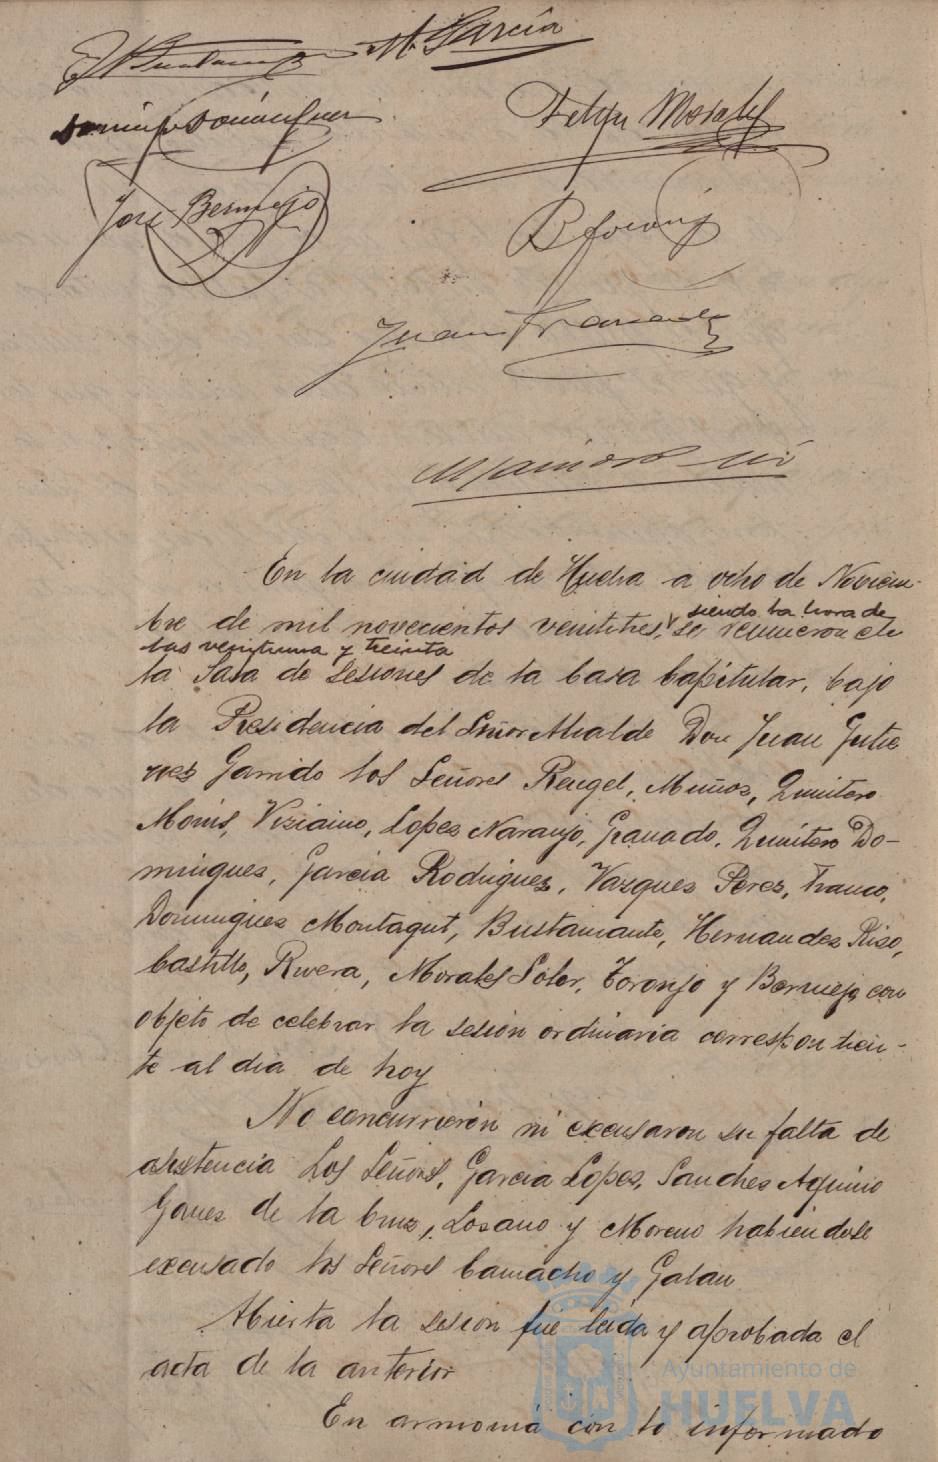 M. García
Felipe Morales
José Bermejo
En la ciudad de Huelva a ocho de Noviem-
bre de mil novecientos veintitres, siendo la hora de
las veintiuna y treinta se reunieron en
la Sala de Sesiones de la Casa Capitular, bajo
la Presidencia del Señor Alcalde Don Juan Gutie
rrez Garrido los Señores Rengel, Muñoz, Quintero
Moris, Viziaino, Lopez Naranjo, Granado, Quintero Do-
mingues, Garcia Rodrigues, Vazques Perez, Franco,
Domingues Montagut, Bustamante, Hernandez Riso,
Castillo, Rivera, Morales Soler, Toronjo y Bermejo con
objeto de celebrar la sesión ordinaria correspondien-
te al dia de hoy
No concurrieron ni excusaron su falta de
asistencia Los Señores, Garcia Lopez, Sanches Aquino
Gomes de la Cruz, Losano y Moreno habiendose
excusado los Señores Camacho y Galan
Abierta la sesión fue leida y aprobada el
acta de la anterior
En armonia con lo informado
Ayuntamiento de
HUELVA